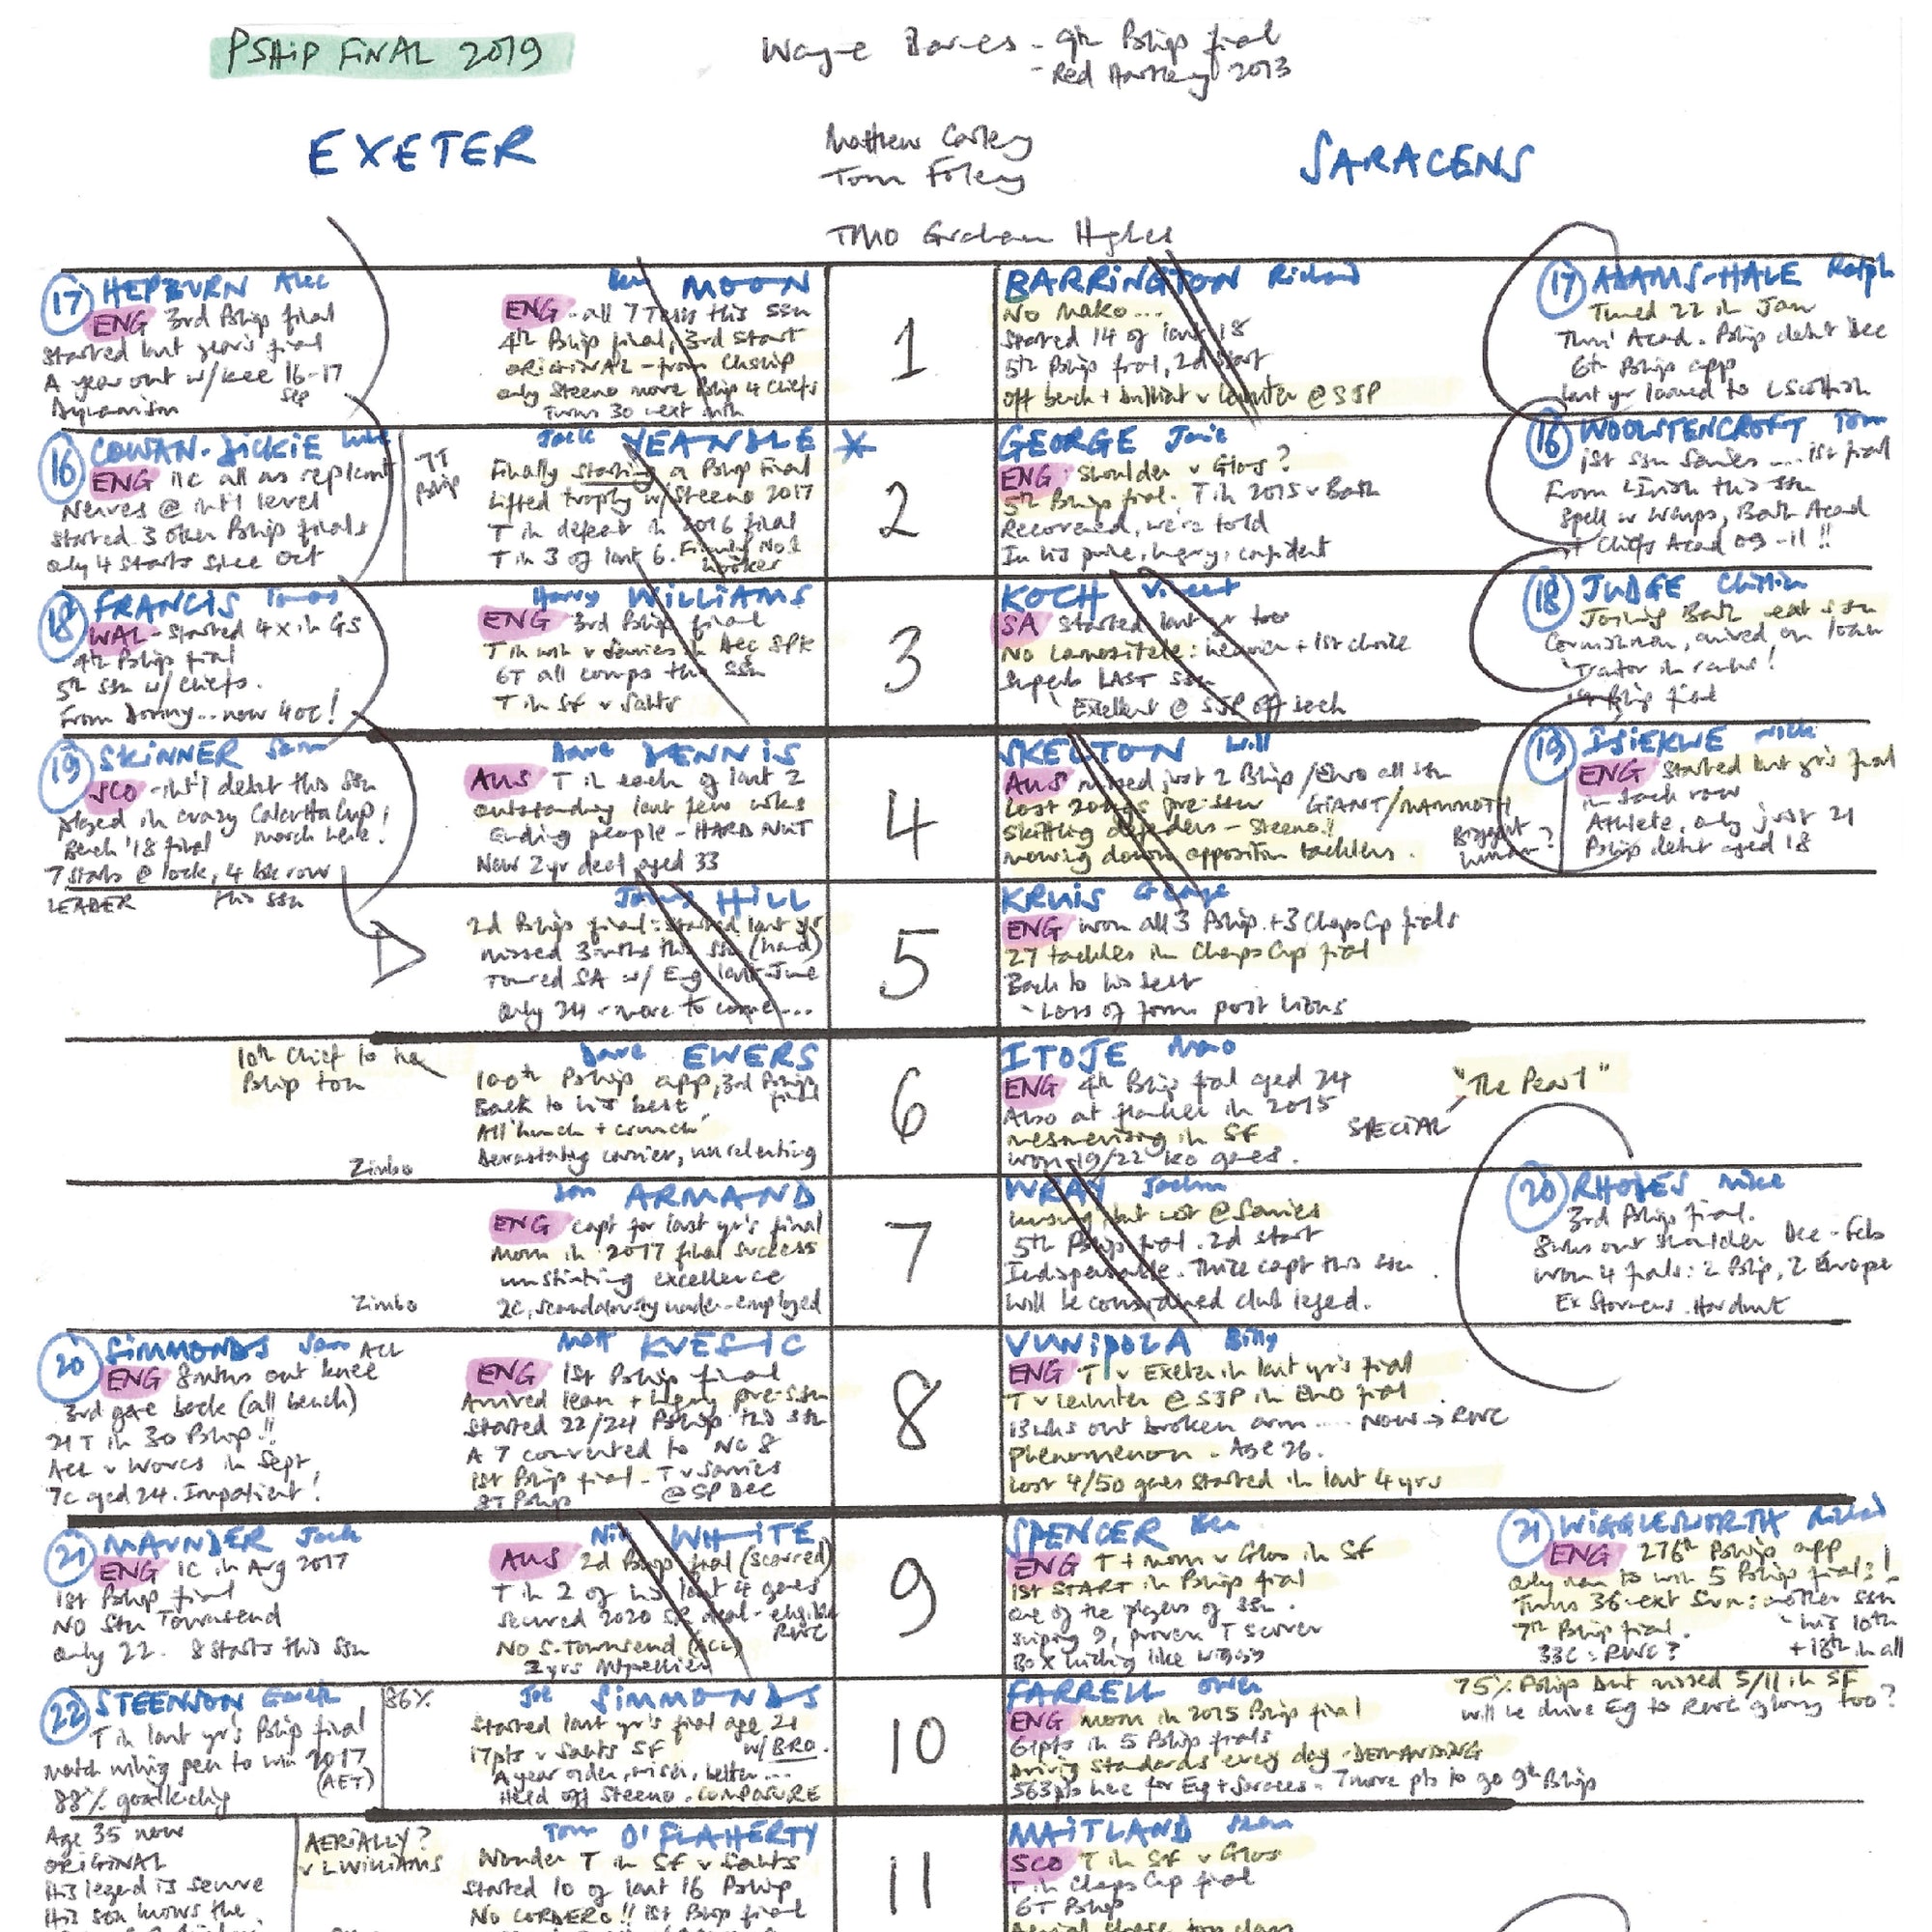 PSHIP FINAL 2019
Wayne Barnes - 9th Pship final
- Red Hartley 2013
EXETER
Matthew Carley
Tom Foley
SARACENS
TMO Graham Hughes
17 HEPBURN Alec
ENG 3rd Pship final
Started last year's final
A year out w/knee 16-17
Sep
Dynamism
Ben MOON
ENG - all 7 Tests this ssn
4th Pship final, 3rd start
ORIGINAL - from Chship
only Steeno more Pship 4 Chiefs
Turns 30 next mth
1
BARRINGTON Richard
No Mako...
Started 14 of last 18
5th Pship final, 2d start
Off bench + brilliant v Leinster @ SJP
17 ADAMS-HALE Ralph
Turned 22 in Jan
Thru' Acad. Pship debut Dec
6th Pship app
Last yr loaned to L Scottish
16 COWAN-DICKIE Luke
ENG 11c all as replcmt
Nerves @ int'l level
Started 3 other Pship finals
Only 4 starts since Oct
7T
Pship
Jack YEANDLE *
Finally starting a Pship final
Lifted trophy w/Steeno 2017
T in defeat in 2016 final
T in 3 of last 6. Firmly No1
hooker
2
GEORGE Jamie
ENG shoulder v Glos?
5th Pship final. T in 2015 v Bath
Recovered, we're told
In his prime, hungry, confident
16 WOOLSTENCROFT Tom
1st ssn Sarries .... 1st final
From L Irish this ssn
Spell w Wasps, Bath Acad
+ Chiefs Acad 09-11!!
18 FRANCIS Tomas
WAL - Started 4x in GS
4th Pship final
5th ssn w/ Chiefs.
From Donny... now 40c!
Harry WILLIAMS
ENG 3rd Pship final
T in win v Sarries in Dec SPK
6T all comps this ssn
T in SF v Salts
3
KOCH Vincent
SA started last yr too
No Lamositele: heavier + 1st choice
Superb LAST ssn
Excellent @ SJP off bench
18 JUDGE Christian
Joining Bath next ssn
Cornishman, arrived on loan
'Traitor in ranks!
1st Pship final
19 SKINNER Sam
SCO - int'l debut this ssn
Played in crazy Calcutta Cup,
March here!
Bench '18 final
7 starts @ lock, 4 bk row
this ssn
LEADER
Dave DENNIS
AUS T in each of last 2
Outstanding last few wks
Ending people - HARD NUT
New 2yr deal aged 33
4
SKELTON Will
AUS missed just 2 Pship/Euro all ssn
Lost 20kgs pre-ssn GIANT/MAMMOTH
Skittling defenders - Steeno!!
mowing down opposition tacklers.
Biggest
human?
19 ISIEKWE Nick
ENG started last yr's final
in back row
Athlete, only just 21
Pship debut aged 18
Jonny HILL
2d Pship final: started last yr
missed 3mths this ssn (hand)
Toured SA w/ Eng last June
Only 24 - more to come...
5
KRUIS George
ENG won all 3 Pship + 3 Champs Cp finals
27 tackles in Champs Cup final
Back to his best
- Loss of form post Lions
10th Chief to he
Pship ton
Zimbo
Dave EWERS
100th Pship app, 3rd Pship
final
Back to his best
All 'hunch + crunch'
Devastating carrier, unrelenting
6
ITOJE Maro
ENG 4th Pship final aged 24
Also at flanker in 2015
Mesmerising in SF
Won 19/22 KO games.
SPECIAL
"The Pearl"
Zimbo
Don ARMAND
ENG capt for last yr's final
Mom in 2017 final success
unstinting excellence
2c, scandalously under-employed
7
WRAY Jackson
Unsung, but not @ Sarries
5th Pship final. 2d start
Indispensable. Thrice capt this ssn
Will be considered club legend.
20 RHODES Mike
3rd Pship final.
8wks out shoulder Dec-Feb
Won 4 finals: 2 Pship, 2 Europe
Ex Stormers. Hardnut
20 SIMMONDS Sam ACL
ENG 8mths out knee
3rd game back (all bench)
21T in 30 Pship!!
ACL v Worcs in Sept
7c aged 24. Impatient!
Matt KVESIC
ENG 1st Pship final
Arrived lean + hungry pre-ssn
Started 22/24 Pship this ssn
A 7 converted to No 8
1st Pship final - T v Sarries
@SP Dec
8T Pship
8
VUNIPOLA Billy
ENG T v Exeter in last yr's final
T v Leinster @ SJP in Euro final
13wks out broken arm ..... Now → RWC
Phenomenon - Age 26.
Lost 4/50 games started in last 4 yrs
21 MAUNDER Jack
ENG 1C in Arg 2017
1st Pship final
NO Stu Townsend
Only 22. 8 starts this ssn
Nic WHITE
AUS 2d Pship final (scarred)
T in 2 of his last 4 games
Secured 2020 SR deal - eligible
RWC
No S. Townsend (ACL)
2yrs Mtpellier
9
SPENCER Ben
ENG T + mom v Glos in SF
1st START in Pship final
One of the players of ssn.
Sniping 9, proven T scorer
Box kicking like Wiggy
21 WIGGLESWORTH Richard
ENG 276th Pship app
Only man to win 5 Pship finals!
Turns 36 next Sun: another ssn
7th Pship final. - his 10th
33C = RWC? + 18th in all
22 STEENSON Gareth
T in last yr's Pship final
Match wining pen to win 2017
(AET)
88% goalkicking
86%
Joe SIMMONDS
Started last yr's final age 21
17pts v Salts SF w/ BRO.
A year older, wiser, better...
Held off Steeno. COMPOSURE
10
FARRELL Owen
ENG mom in 2015 Pship final
61pts in 5 Pship finals
Driving standards every day - DEMANDING
563pts here for Eng + Saracens - 7 more pts to go 9th Pship
75% Pship but missed 5/11 in SF
Will he drive Eng to RWC glory too?
Age 35 now
ORIGINAL
His legend is secure
His son knows the
AERIALLY?
v L WILLIAMS
Tom O'FLAHERTY
Wonder T in SF v Salts
Started 10 of last 16 Pship
No CORDERO!! 1st Pship final
11
MAITLAND Sean
SCO T in SF v Glos
T in Champs Cup final
6T Pship
Aerial threat top class